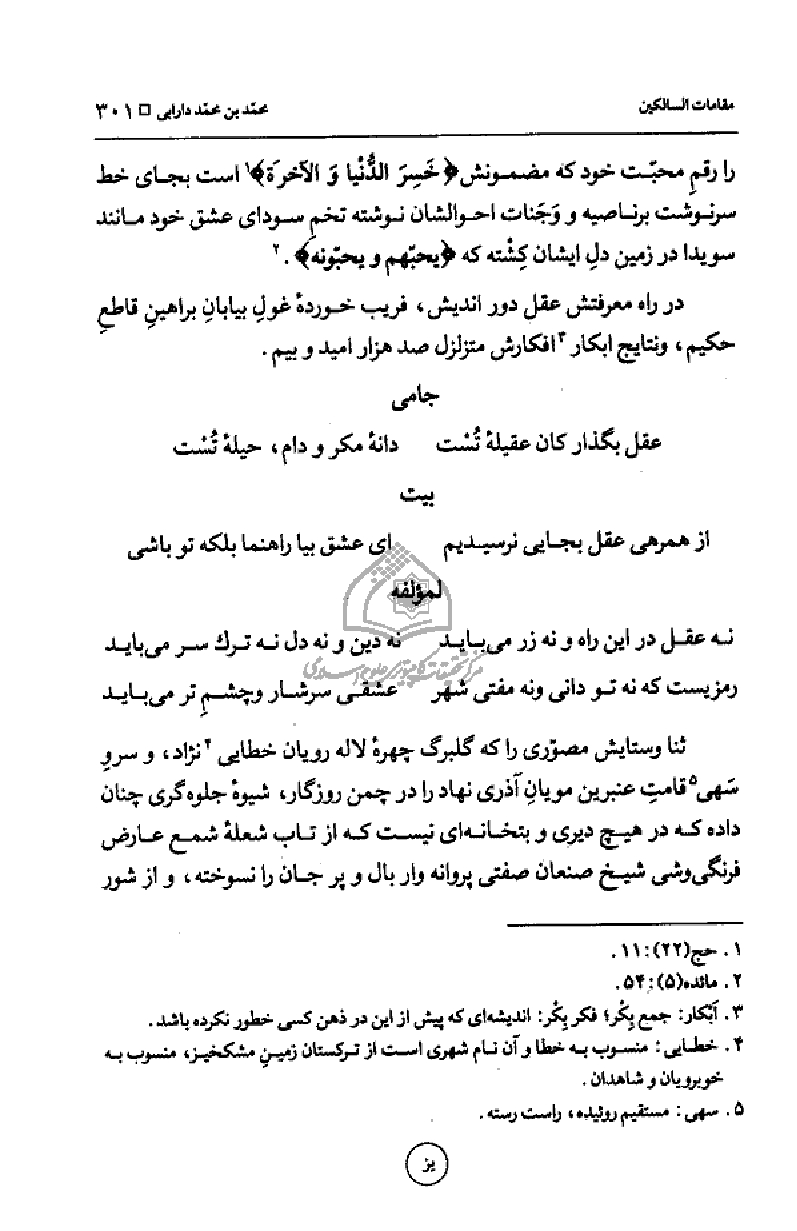 مقامات السالکین
محمّد بن محمّد دارابی □ ۳۰۱
را رقمِ محبّت خود که مضمونش ﴿خَسِرَ الدُّنْیا وَ الآخرَة﴾۱ است بجای خط
سرنوشت برناصیه و وَجَنات احوالشان نوشته تخمِ سودای عشق خود مانند
سویدا در زمین دلِ ایشان کِشْته که ﴿یحبّهم و یحبّونه﴾ .۲
در راه معرفتش عقل دور اندیش، فریب خوردهٔ غولِ بیابانِ براهینِ قاطعِ
حکیم، ونتایج ابکار ۳ افکارش متزلزل صد هزار امید و بیم.
جامی
عقل بگذار کان عقیلهٔ تُسْت دانهٔ مکر و دام، حیلهٔ تُسْت
بیت
از همرهی عقل بجایی نرسیدیم ای عشق بیا راهنما بلکه تو باشی
لمؤلفه
نه عقل در این راه و نه زر می‌باید نه دین و نه دل نه ترك سر می‌باید
رمزیست که نه تو دانی ونه مفتی شهر عشقی سرشار وچشمِ تر می‌باید
مرکز تحقیقات کامپیوتری علوم اسلامی
ثنا وستایش مصوّری را که گلبرگ چهرهٔ لاله رویان خطایی ۴ نژاد، و سروِ
سَهی ۵ قامتِ عنبرین مویانِ آذری نهاد را در چمن روزگار، شیوهٔ جلوه‌گری چنان
داده که در هیچ دیری و بتخانه‌ای نیست که از تاب شعلهٔ شمع عارض
فرنگی‌وشی شیخ صنعان صفتی پروانه وار بال و پر جان را نسوخته، و از شور
۱ . حج(۲۲):۱۱ .
۲ . مائده(۵): ۵۴.
۳ . اَبْکار: جمع بِکْر؛ فکر بِکْر: اندیشه‌ای که پیش از این در ذهن کسی خطور نکرده باشد.
۴ . خطایی: منسوب به خطا و آن نام شهری است از ترکستان زمینِ مشکخیز، منسوب به
خوبرویان و شاهدان .
۵ . سهی: مستقیم روئیده، راست رسته .
یز